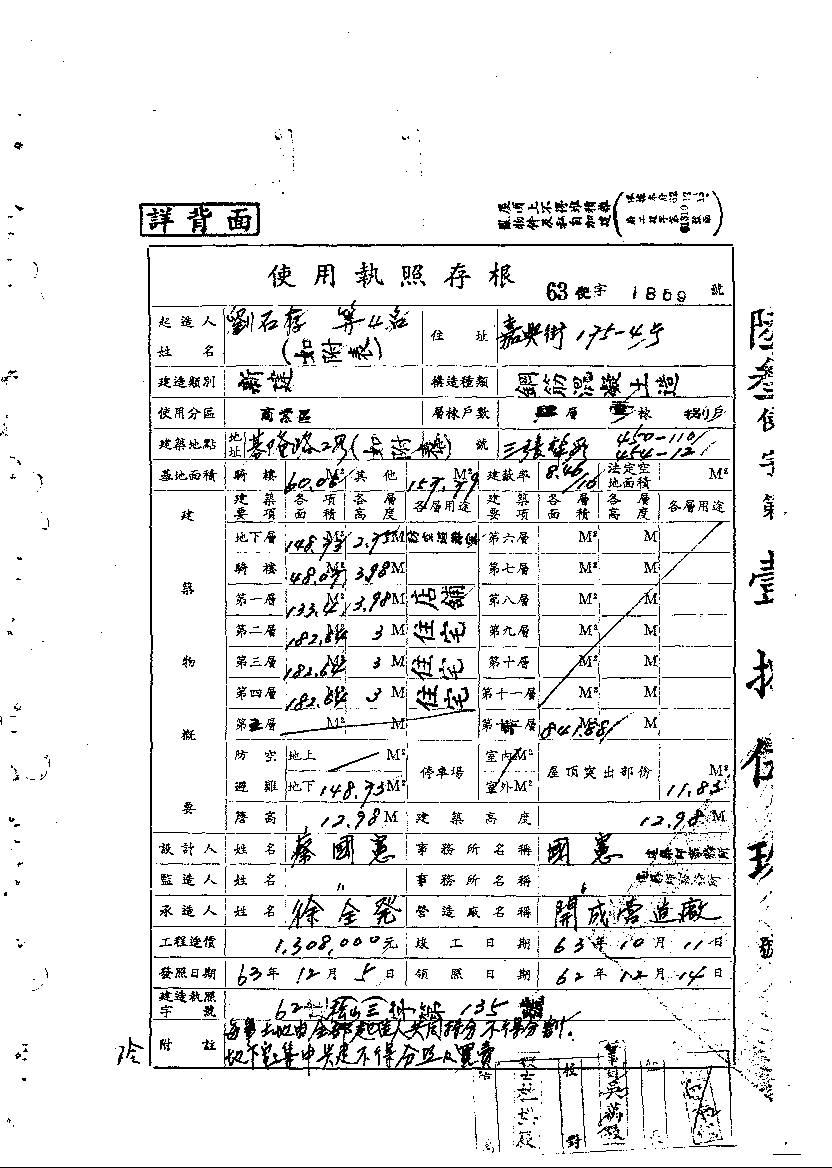 詳背面
屋頂上不得堆積雜
物件及私自加建
使用執照存根
63使字 1859 號
起造人姓名 劉石存 等4名 (如附表) 住址 嘉興街175-4号
建造類別 新建 構造種類 鋼筋混凝土造
使用分區 商業區 層棟戶數 層 棟 戶
建築地點 地址 基隆路2段(如附表) 號 三張犁段 450-110 454-12
基地面積 騎樓 60.06 M² 其他 M² 建蔽率 8.46/10 法定空地面積 M²
建築要項 各項面積 各層高度 各層用途 建築要項 各層面積 各層高度 各層用途
建築物概要
地下層 148.73 M² 2.75 M 第六層 M² M
騎樓 48.09 M² 3.98 M 第七層 M² M
第一層 133.4 M² 3.98 M 店舖 第八層 M² M
第二層 182.64 M² 3 M 住宅 第九層 M² M
第三層 182.64 M² 3 M 住宅 第十層 M² M
第四層 182.64 M² 3 M 住宅 第十一層 M² M
第五層 M² M 841.88 M² M
防空避難 地上 M² 停車場 室內 M² 屋頂突出部份 M²
地下 148.73 M² 室外 M² 11.83
簷高 12.98 M 建築高度 12.98 M
設計人 姓名 蔡國憲 事務所名稱 國憲 建築師事務所
監造人 姓名 〃 事務所名稱 〃 建築師事務所
承造人 姓名 徐金發 營造廠名稱 開成營造廠
工程造價 1,308,000元 竣工日期 63年10月11日
發照日期 63年12月5日 領照日期 62年12月14日
建造執照字號 62 135
附註 每筆土地由全部起造人共同持分不得分割.
地下室集中共是不得分區及買賣
陸叁使字第壹捌伍玖號
校對